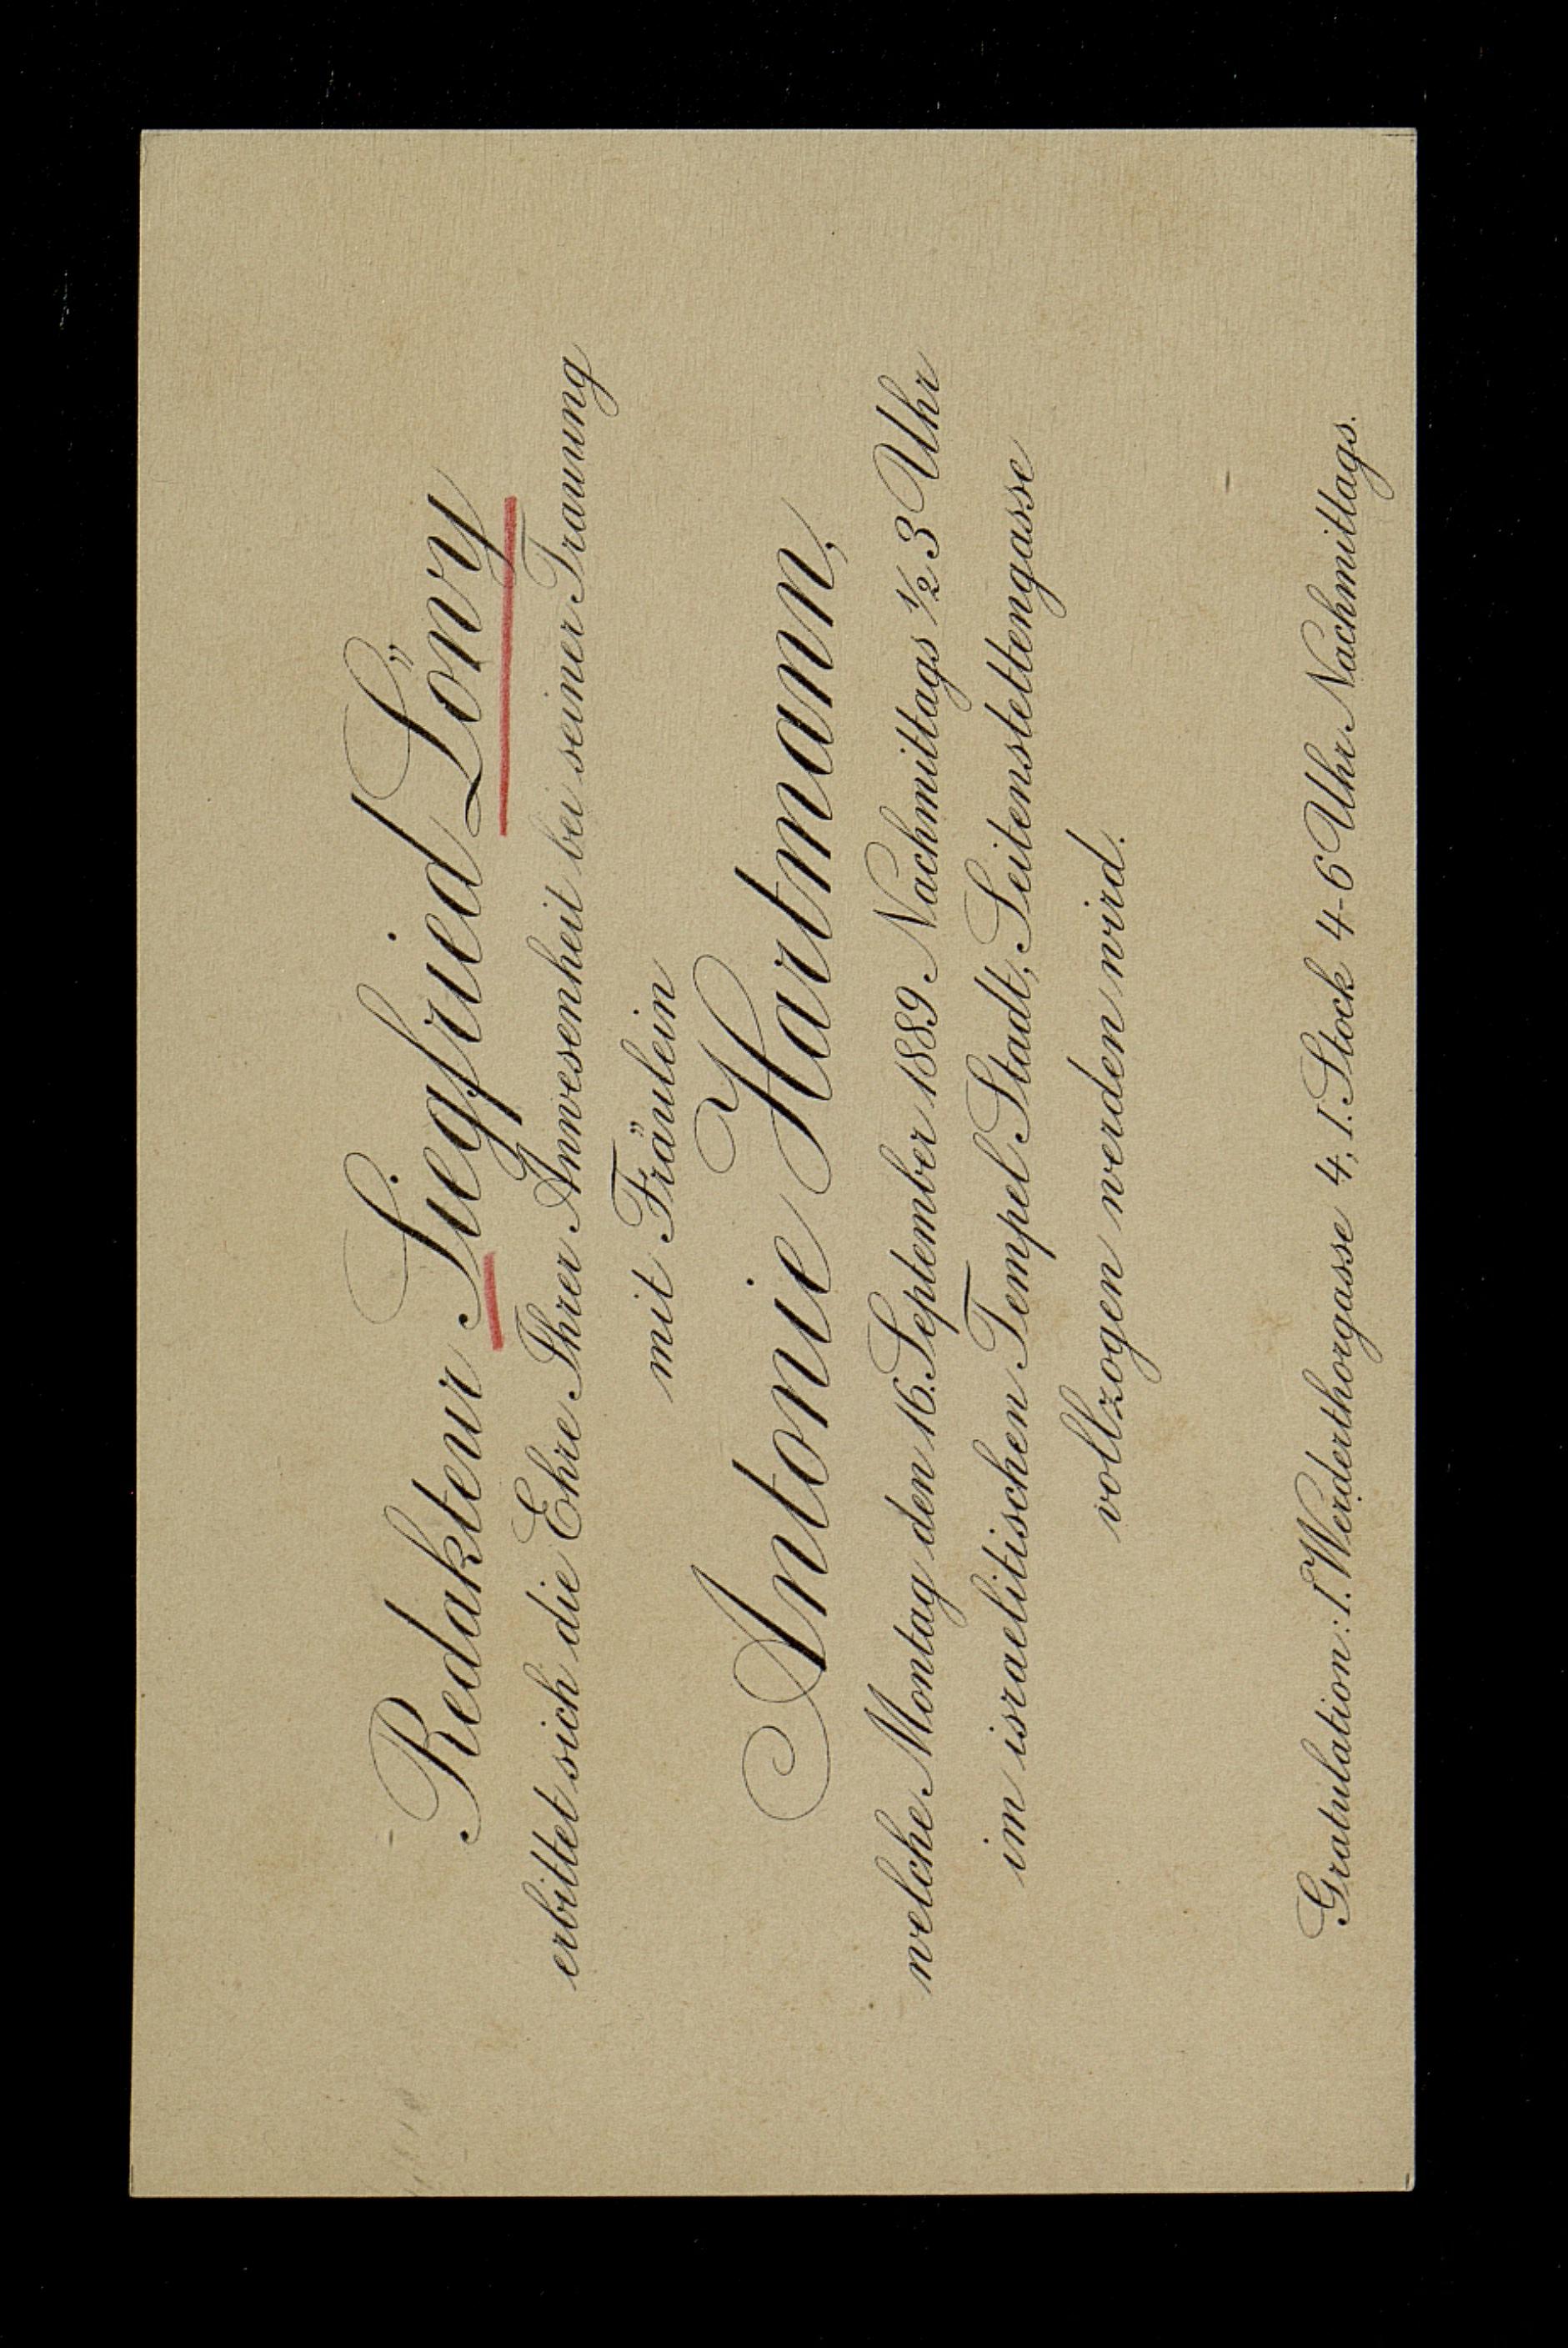 Redakteur Siegfried Löwy
erbittet sich die Ehre Ihrer Anwesenheit bei seiner Trauung
mit Fräulein
Antonie Hartmann,
welche Montag den 16. September 1889 Nachmittags ½ 3 Uhr
im israelitischen Tempel Stadt, Seitenstettengasse
vollzogen werden wird.
Gratulation: I. Werderthorgasse 4, I. Stock 4-6 Uhr Nachmittags.